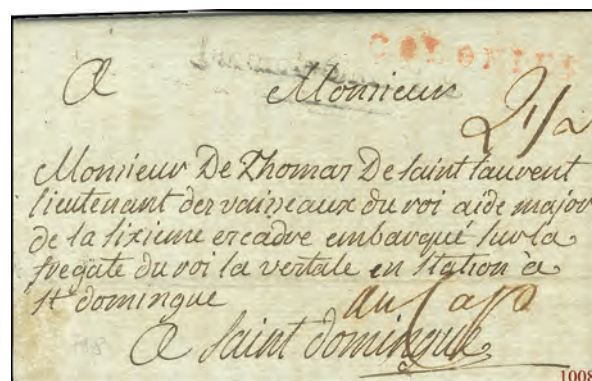 COLONIES
A Monsieur
Monsieur De Thomas De Saint laurent
lieutenant des vaisseaux du roi aide major
de la sixieme escadre embarqué sur la
fregate du roi la vestale en station à
St domingue
au Cap
A Saint domingue
1008